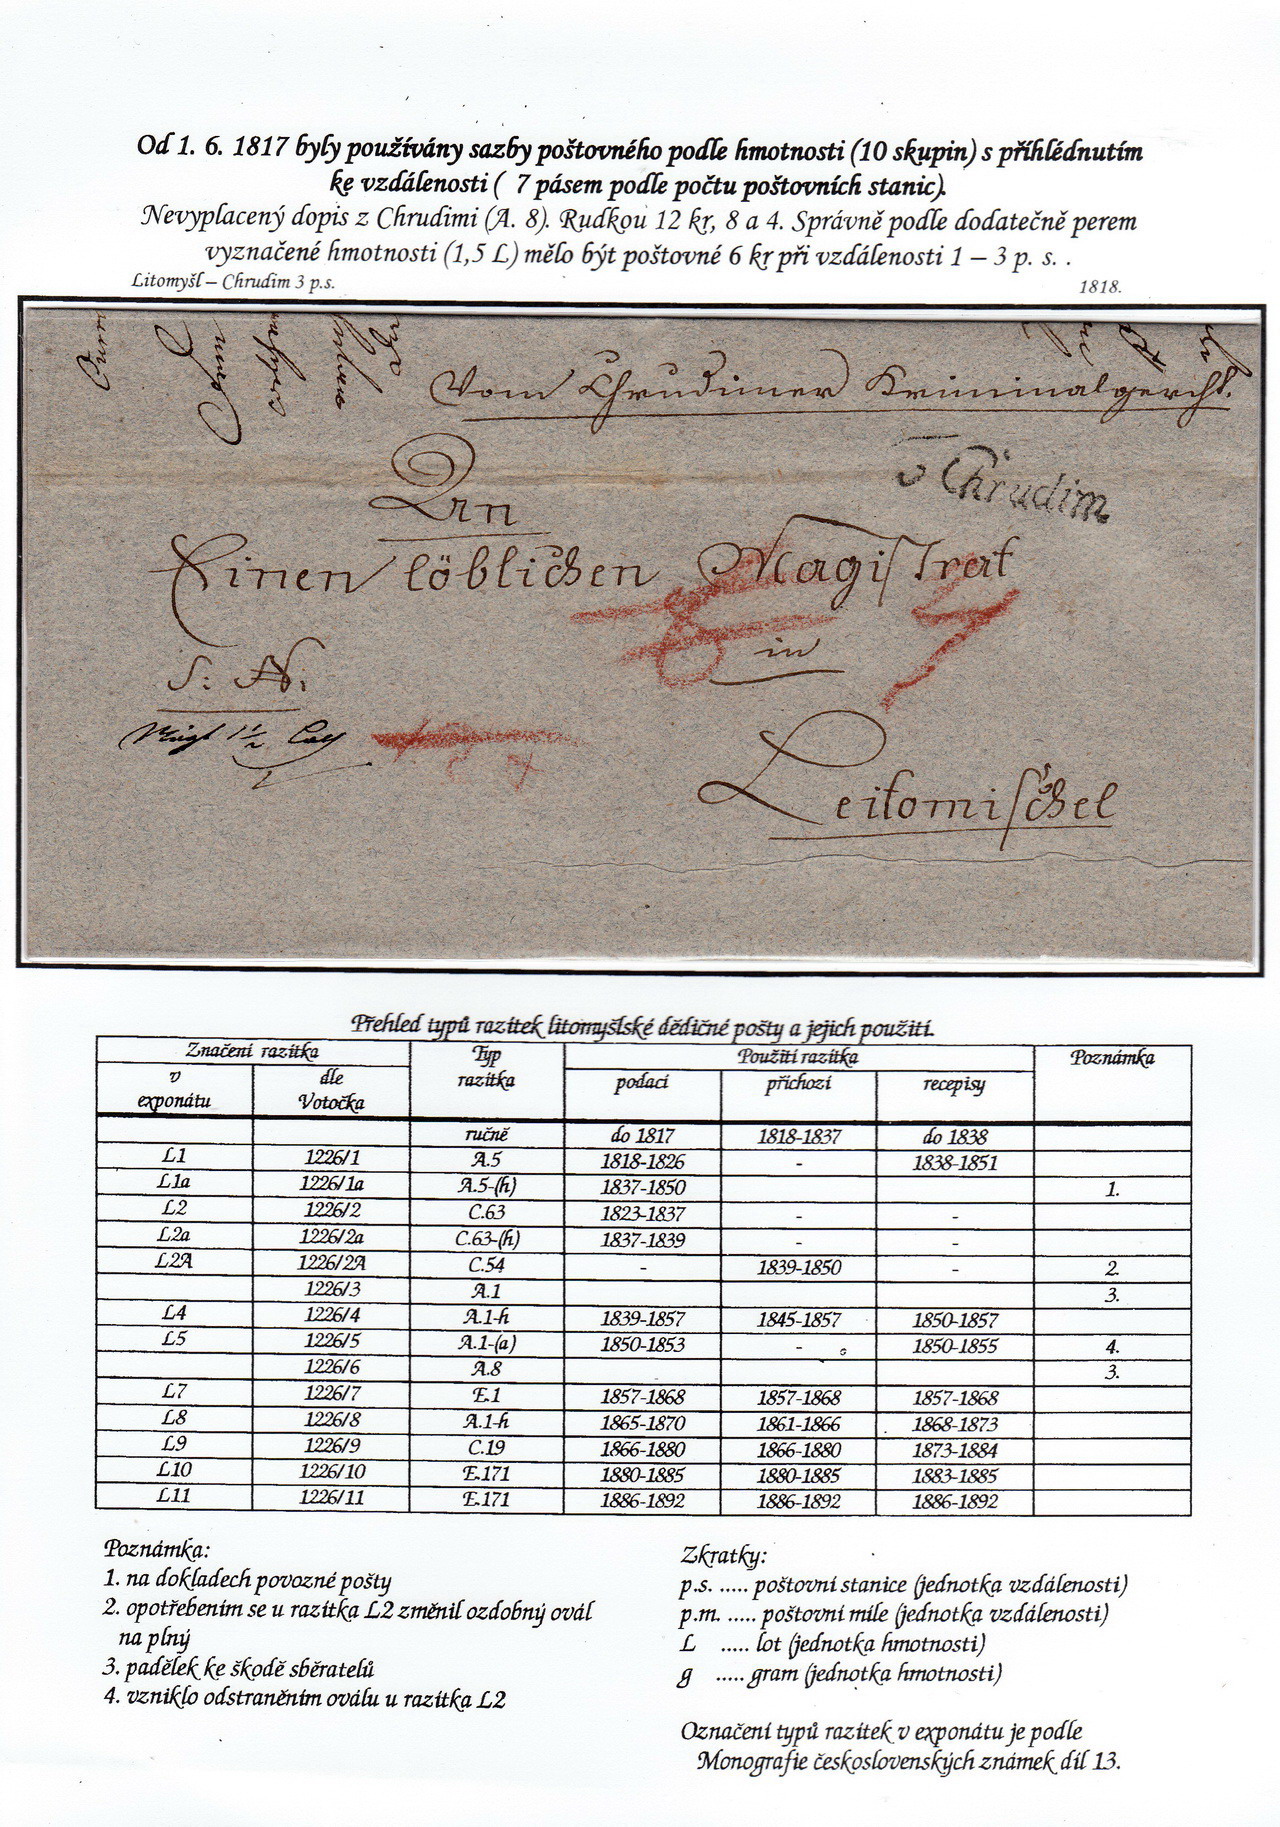 Od 1. 6. 1817 byly používány sazby poštovného podle hmotnosti (10 skupin) s příhlédnutím
ke vzdálenosti ( 7 pásem podle počtu poštovních stanic).
Nevyplacený dopis z Chrudimi (A. 8). Rudkou 12 kr, 8 a 4. Správně podle dodatečně perem
vyznačené hmotnosti (1,5 L) mělo být poštovné 6 kr při vzdálenosti 1 – 3 p. s. .
Litomyšl – Chrudim 3 p.s. 1818.
Vom Chrudimer Kriminalgercht.
v Chrudim
An
Einen löblichen Magistrat
in
S: N:
1 1/2
Leitomischel
Přehled typů razítek litomyšlské dědičné pošty a jejich použití.
Značení razítka Typ razítka Použití razítka Poznámka
v exponátu dle Votočka podací příchozí recepisy
ručně do 1817 1818-1837 do 1838
L1 1226/1 A.5 1818-1826 - 1838-1851
L1a 1226/1a A.5-(h) 1837-1850 1.
L2 1226/2 C.63 1823-1837 - -
L2a 1226/2a C.63-(h) 1837-1839 - -
L2A 1226/2A C.54 - 1839-1850 - 2.
1226/3 A.1 3.
L4 1226/4 A.1-h 1839-1857 1845-1857 1850-1857
L5 1226/5 A.1-(a) 1850-1853 - 1850-1855 4.
1226/6 A.8 3.
L7 1226/7 E.1 1857-1868 1857-1868 1857-1868
L8 1226/8 A.1-h 1865-1870 1861-1866 1868-1873
L9 1226/9 C.19 1866-1880 1866-1880 1873-1884
L10 1226/10 E.171 1880-1885 1880-1885 1883-1885
L11 1226/11 E.171 1886-1892 1886-1892 1886-1892
Poznámka:
1. na dokladech povozné pošty
2. opotřebením se u razítka L2 změnil ozdobný ovál
na plný
3. padělek ke škodě sběratelů
4. vzniklo odstraněním oválu u razítka L2
Zkratky:
p.s. ..... poštovní stanice (jednotka vzdálenosti)
p.m. ..... poštovní míle (jednotka vzdálenosti)
L ..... lot (jednotka hmotnosti)
g ..... gram (jednotka hmotnosti)
Označení typů razítek v exponátu je podle
Monografie československých známek díl 13.